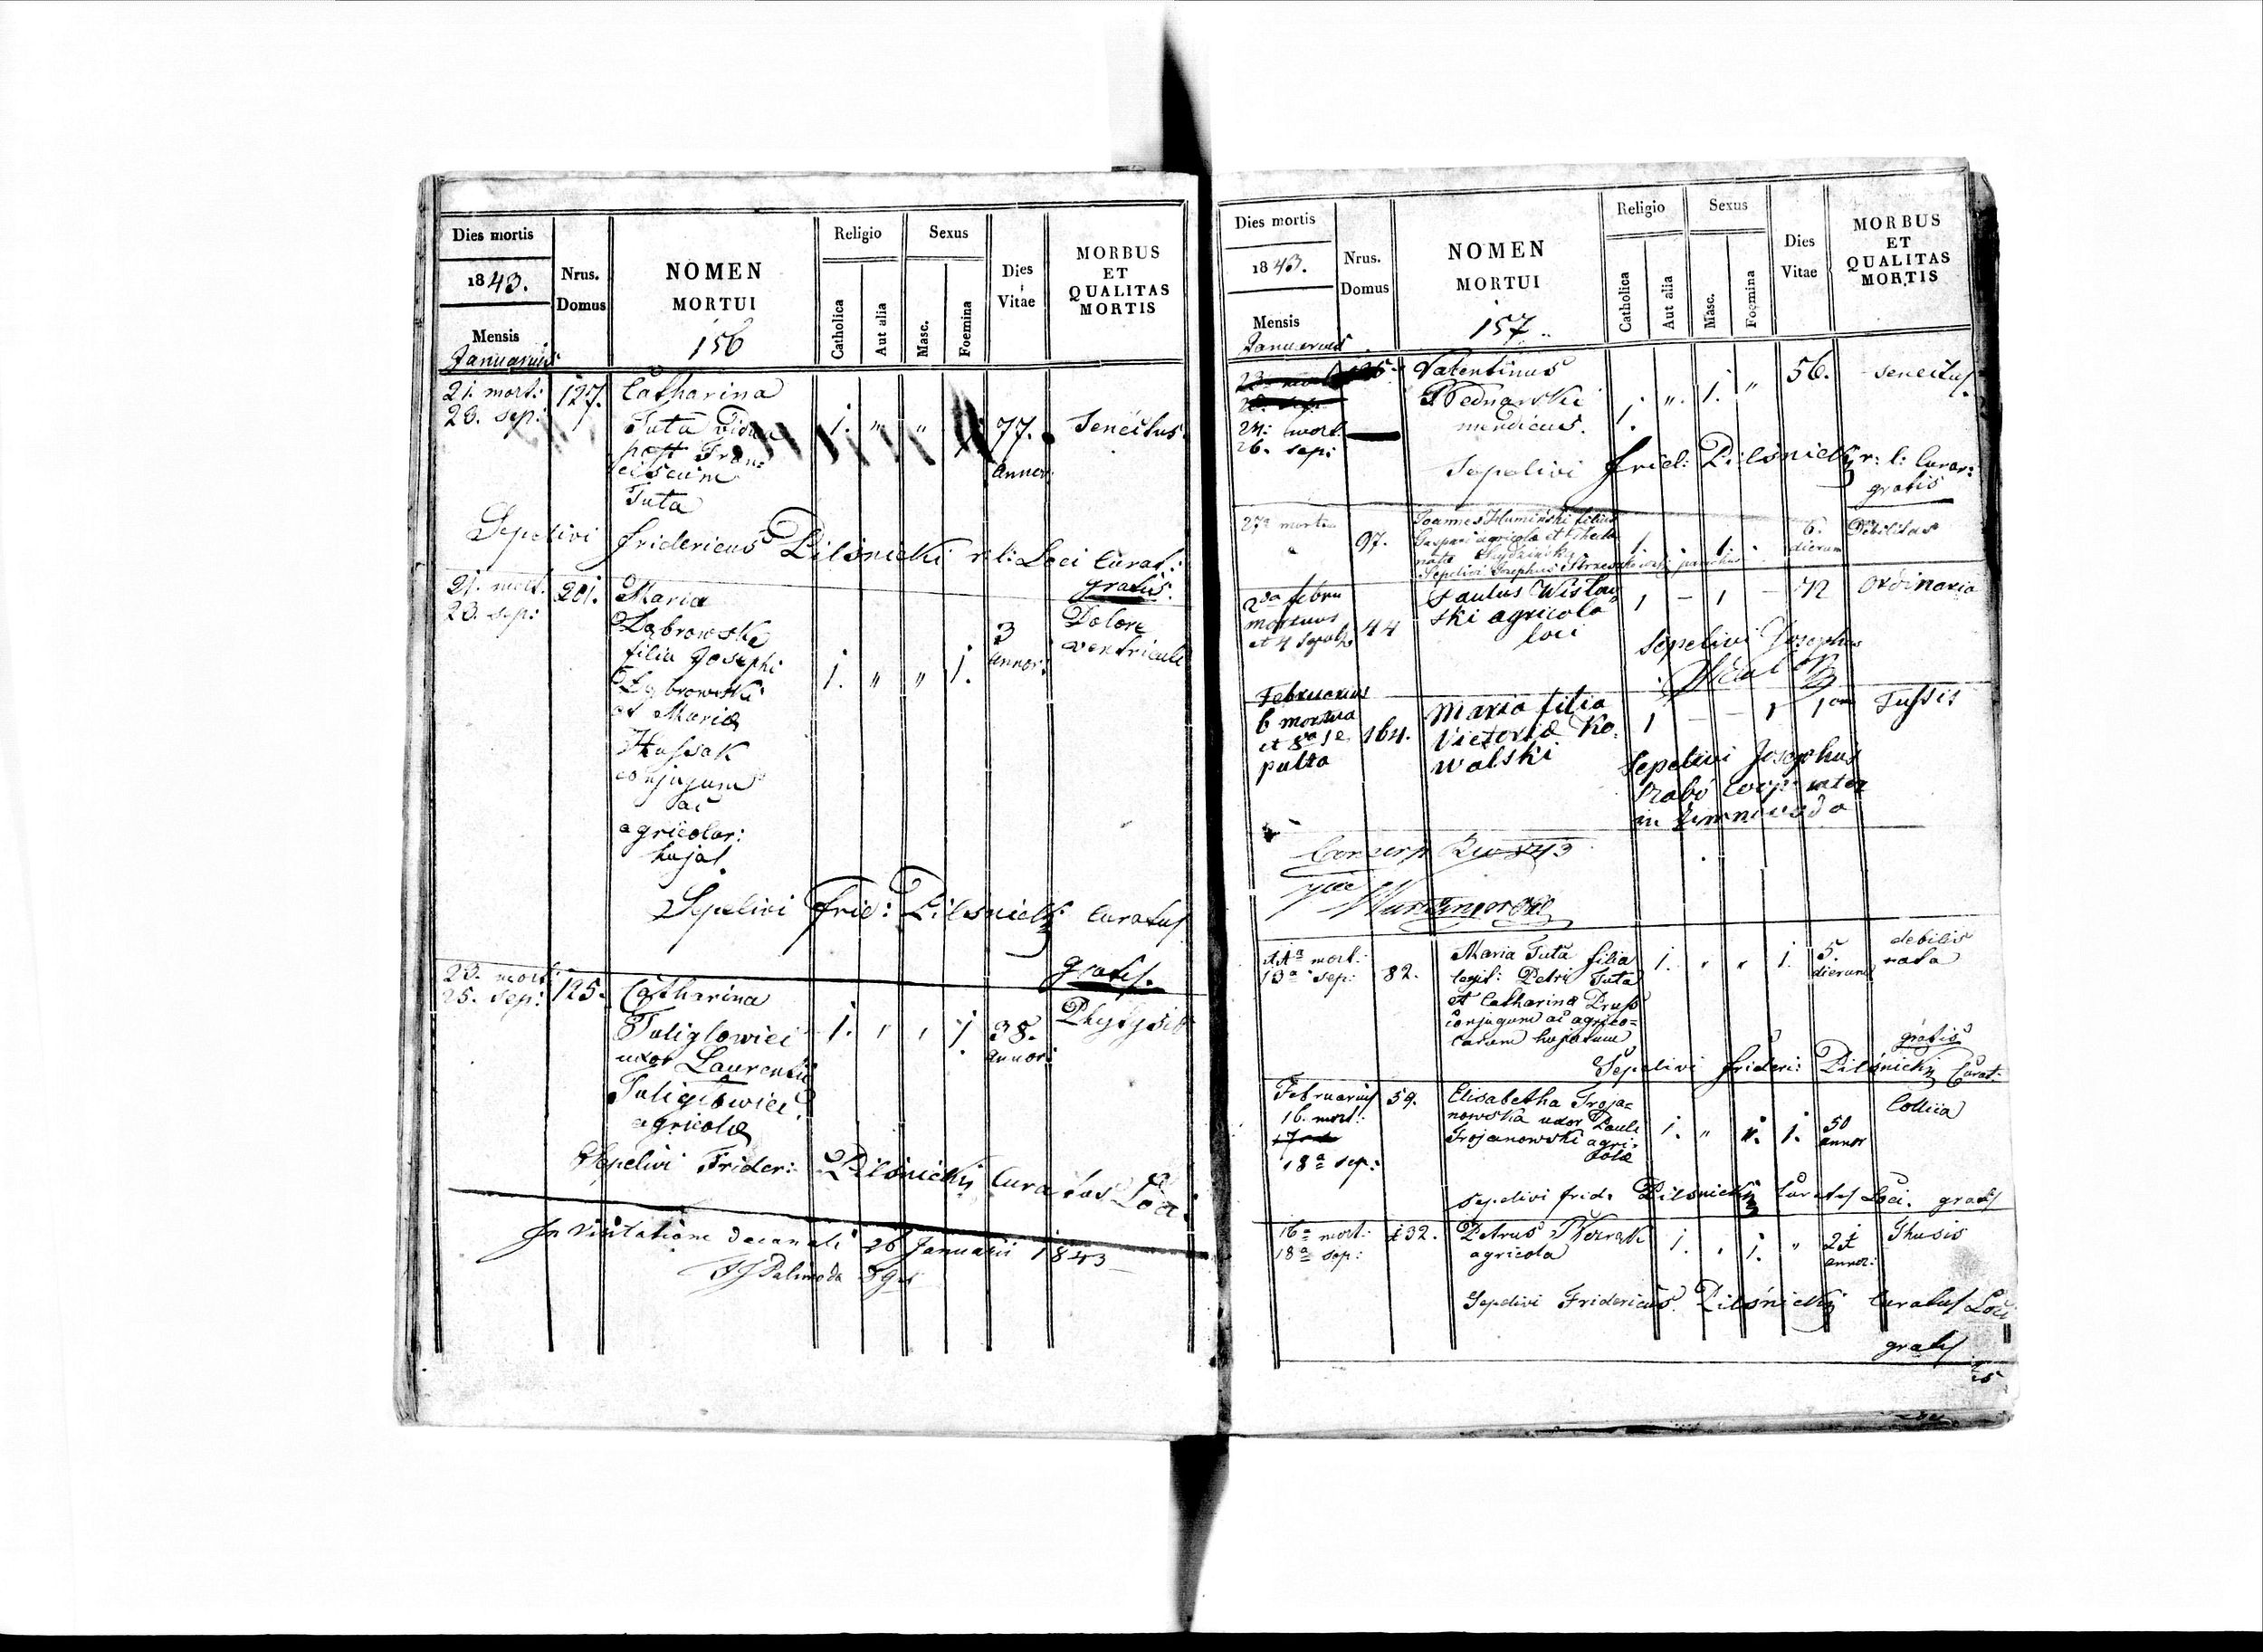 Dies mortis
1843.
Mensis
Januarius
Nrus.
Domus
NOMEN
MORTUI
156
Religio
Catholica
Aut alia
Sexus
Masc.
Foemina
Dies
Vitae
MORBUS
ET
QUALITAS
MORTIS
21. mort: 127. Catharina
23. sep: Tuta Vidua 1. " " 77. Senectus
post Fran= annor:
ciscum
Tuta
Sepelivi Fridericus Pilsnicki r: l: Loci Curat:
gratis.
21. mort. 201. Maria Dolore
23. sep: Dąbrowska 3 ventriculi
filia Josephi annor:
Dąbrowski 1. " " 1.
et Maria
Hussak
conjugum
ac
agricolar:
hujat.
Sepelivi Frid: Pilsnicki Curatus
gratis.
23. mort. 125. Catharina Phtysis
25. sep: Tuliglowicz 1. " " 1. 38.
uxor Laurentii annor:
Tuliglowicz
agricolae
Sepelivi Frider: Pilsnicky Curatus Loci.
In Visitatione decanali 26 Januarii 1843
Dies mortis
1843.
Mensis
Januarius
Nrus.
Domus
NOMEN
MORTUI
157
Religio
Catholica
Aut alia
Sexus
Masc.
Foemina
Dies
Vitae
MORBUS
ET
QUALITAS
MORTIS
Valentinus 56. senectus.
Bednarski 1. ". 1. "
24. mort. mendicus.
26. sep:
Sepelivi Frid: Pilsnicky r: l: Curat:
gratis
27a mort 97. Joannes filius 6. Debilitas
agricola et 1. . 1. . dierum
Sepelivi Josephus parochus
2da febru Paulus Wislow 1 - 1 - 72 ordinaria
mortuus 44 ski agricola
et 4 sepult loci Sepelivi Josephus
Februarius
6 mortua 164. Maria filia 1 - - 1 1 Tussis
et 8va se Victoria Ko.
pulta walski Sepelivi Josephus
Cooperator
in
11a mort. 82. Maria Tuta filia 1. " " 1. 5. debilis
13a sep: legit: Petri Tuta dierum nata
et Catharina Pruss
conjugum ac agrico=
larum hujatum gratis
Sepelivi Frideri: Pilsnicky Curat:
Februarius 59. Elisabetha Troja= Collica
16. mort: nowska uxor Pauli 1. " ". 1. 50
Trojanowski agri= annor
18a sep: colae
Sepelivi Frid. Pilsnicky Curatus Loci. gratis
16a mort: 132. Petrus 1. " 1. " 21 Thusis
18a sep: agricola annor:
Sepelivi Fridericus Pilsnicky Curatus Loci
gratis